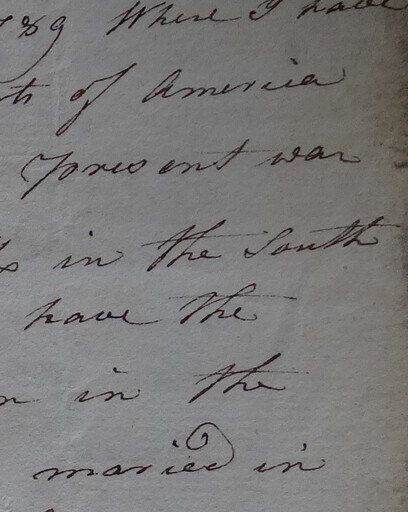 789 Where I have
ts of America
present war
in the South
have the
n in the
maried in